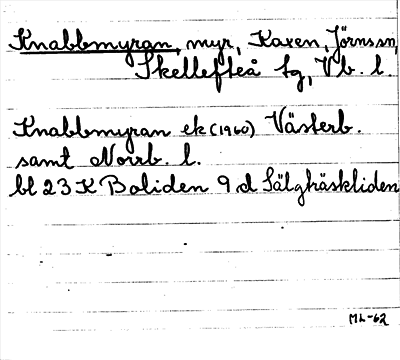 Knabbmyran, myr, Kaxen, Jörns sn,
Skellefteå tg, Vb. l.
Knabbmyran ek (1960) Västerb.
samt Norrb. l.
bl 23 K Boliden 9 d Sälghäskliden
ML-62